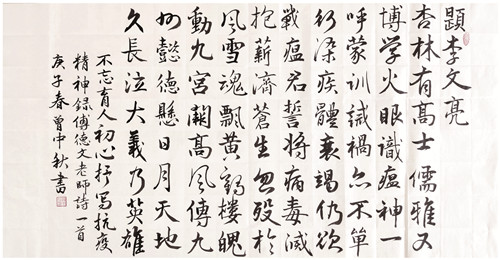 題李文亮
杏林有高士儒雅又
博学火眼識瘟神一
呼蒙训诫禍亦不單
行染疾體衰竭仍欲
戰瘟君誓將病毒滅
抱薪濟蒼生忽殁於
風雪魂飄黄鶴樓魄
動九宫闕高風傳九
州懿德懸日月天地
久長泣大義乃英雄
不忘育人初心抒寫抗疫
精神錄傅德文老師詩一首
庚子春曾中秋書